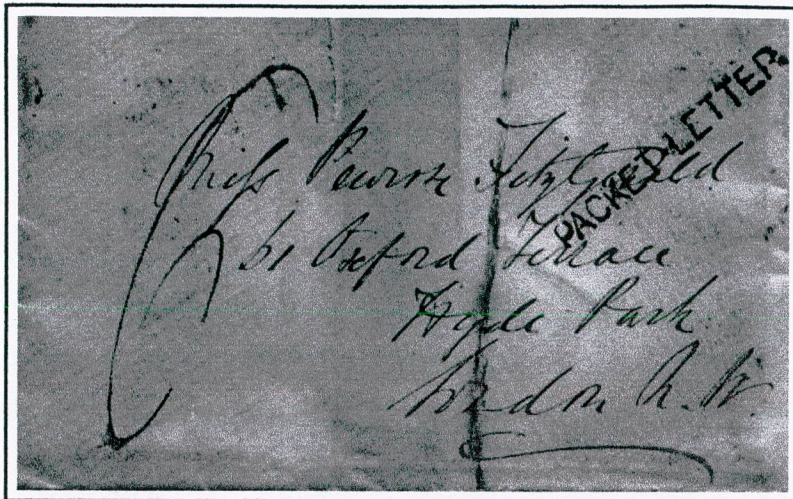 PACKET-LETTER
Miss Penrose Fitzgerald
61 Oxford Terrace
Hyde Park
London N. W.